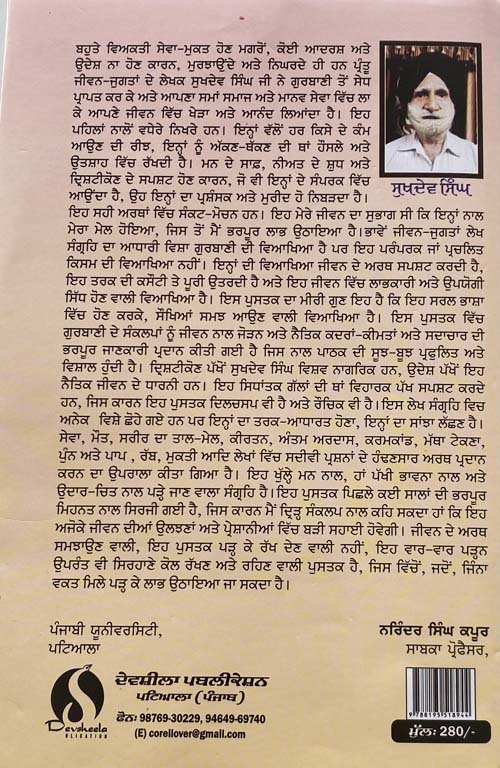 ਬਹੁਤੇ ਵਿਅਕਤੀ ਸੇਵਾ-ਮੁਕਤ ਹੋਣ ਮਗਰੋਂ, ਕੋਈ ਆਦਰਸ਼ ਅਤੇ
ਉਦੇਸ਼ ਨਾ ਹੋਣ ਕਾਰਨ, ਮੁਰਝਾਉਂਦੇ ਅਤੇ ਨਿਘਰਦੇ ਹੀ ਹਨ ਪ੍ਰੰਤੂ
ਜੀਵਨ-ਜੁਗਤਾਂ ਦੇ ਲੇਖਕ ਸੁਖਦੇਵ ਸਿੰਘ ਜੀ ਨੇ ਗੁਰਬਾਣੀ ਤੋਂ ਸੇਧ
ਪ੍ਰਾਪਤ ਕਰ ਕੇ ਅਤੇ ਆਪਣਾ ਸਮਾਂ ਸਮਾਜ ਅਤੇ ਮਾਨਵ ਸੇਵਾ ਵਿੱਚ ਲਾ
ਕੇ ਆਪਣੇ ਜੀਵਨ ਵਿੱਚ ਖੇੜਾ ਅਤੇ ਆਨੰਦ ਲਿਆਂਦਾ ਹੈ। ਇਹ
ਪਹਿਲਾਂ ਨਾਲੋਂ ਵਧੇਰੇ ਨਿਖਰੇ ਹਨ। ਇਨ੍ਹਾਂ ਵੱਲੋਂ ਹਰ ਕਿਸੇ ਦੇ ਕੰਮ
ਆਉਣ ਦੀ ਰੀਝ, ਇਨ੍ਹਾਂ ਨੂੰ ਅੱਕਣ-ਥੱਕਣ ਦੀ ਥਾਂ ਹੌਸਲੇ ਅਤੇ
ਉਤਸ਼ਾਹ ਵਿੱਚ ਰੱਖਦੀ ਹੈ। ਮਨ ਦੇ ਸਾਫ਼, ਨੀਅਤ ਦੇ ਸ਼ੁਧ ਅਤੇ
ਦ੍ਰਿਸ਼ਟੀਕੋਣ ਦੇ ਸਪਸ਼ਟ ਹੋਣ ਕਾਰਨ, ਜੋ ਵੀ ਇਨ੍ਹਾਂ ਦੇ ਸੰਪਰਕ ਵਿੱਚ
ਆਉਂਦਾ ਹੈ, ਉਹ ਇਨ੍ਹਾਂ ਦਾ ਪ੍ਰਸ਼ੰਸਕ ਅਤੇ ਮੁਰੀਦ ਹੋ ਨਿਬੜਦਾ ਹੈ।
ਸੁਖਦੇਵ ਸਿੰਘ
ਇਹ ਸਹੀ ਅਰਥਾਂ ਵਿੱਚ ਸੰਕਟ-ਮੋਚਨ ਹਨ। ਇਹ ਮੇਰੇ ਜੀਵਨ ਦਾ ਸੁਭਾਗ ਸੀ ਕਿ ਇਨ੍ਹਾਂ ਨਾਲ
ਮੇਰਾ ਮੇਲ ਹੋਇਆ, ਜਿਸ ਤੋਂ ਮੈਂ ਭਰਪੂਰ ਲਾਭ ਉਠਾਇਆ ਹੈ।ਭਾਵੇਂ ਜੀਵਨ-ਜੁਗਤਾਂ ਲੇਖ
ਸੰਗ੍ਰਹਿ ਦਾ ਆਧਾਰੀ ਵਿਸ਼ਾ ਗੁਰਬਾਣੀ ਦੀ ਵਿਆਖਿਆ ਹੈ ਪਰ ਇਹ ਪਰੰਪਰਕ ਜਾਂ ਪ੍ਰਚਲਿਤ
ਕਿਸਮ ਦੀ ਵਿਆਖਿਆ ਨਹੀਂ। ਇਨ੍ਹਾਂ ਦੀ ਵਿਆਖਿਆ ਜੀਵਨ ਦੇ ਅਰਥ ਸਪਸ਼ਟ ਕਰਦੀ ਹੈ,
ਇਹ ਤਰਕ ਦੀ ਕਸੌਟੀ ਤੇ ਪੂਰੀ ਉਤਰਦੀ ਹੈ ਅਤੇ ਇਹ ਜੀਵਨ ਵਿੱਚ ਲਾਭਕਾਰੀ ਅਤੇ ਉਪਯੋਗੀ
ਸਿੱਧ ਹੋਣ ਵਾਲੀ ਵਿਆਖਿਆ ਹੈ। ਇਸ ਪੁਸਤਕ ਦਾ ਮੀਰੀ ਗੁਣ ਇਹ ਹੈ ਕਿ ਇਹ ਸਰਲ ਭਾਸ਼ਾ
ਵਿੱਚ ਹੋਣ ਕਰਕੇ, ਸੌਖਿਆਂ ਸਮਝ ਆਉਣ ਵਾਲੀ ਵਿਆਖਿਆ ਹੈ। ਇਸ ਪੁਸਤਕ ਵਿੱਚ
ਗੁਰਬਾਣੀ ਦੇ ਸੰਕਲਪਾਂ ਨੂੰ ਜੀਵਨ ਨਾਲ ਜੋੜਨ ਅਤੇ ਨੈਤਿਕ ਕਦਰਾਂ-ਕੀਮਤਾਂ ਅਤੇ ਸਦਾਚਾਰ ਦੀ
ਭਰਪੂਰ ਜਾਣਕਾਰੀ ਪ੍ਰਦਾਨ ਕੀਤੀ ਗਈ ਹੈ ਜਿਸ ਨਾਲ ਪਾਠਕ ਦੀ ਸੂਝ-ਬੂਝ ਪ੍ਰਫੁਲਿਤ ਅਤੇ
ਵਿਸ਼ਾਲ ਹੁੰਦੀ ਹੈ। ਦ੍ਰਿਸ਼ਟੀਕੋਣ ਪੱਖੋਂ ਸੁਖਦੇਵ ਸਿੰਘ ਵਿਸ਼ਵ ਨਾਗਰਿਕ ਹਨ, ਉਦੇਸ਼ ਪੱਖੋਂ ਇਹ
ਨੈਤਿਕ ਜੀਵਨ ਦੇ ਧਾਰਨੀ ਹਨ। ਇਹ ਸਿਧਾਂਤਕ ਗੱਲਾਂ ਦੀ ਥਾਂ ਵਿਹਾਰਕ ਪੱਖ ਸਪਸ਼ਟ ਕਰਦੇ
ਹਨ, ਜਿਸ ਕਾਰਨ ਇਹ ਪੁਸਤਕ ਦਿਲਚਸਪ ਵੀ ਹੈ ਅਤੇ ਰੌਚਿਕ ਵੀ ਹੈ।ਇਸ ਲੇਖ ਸੰਗ੍ਰਹਿ ਵਿਚ
ਅਨੇਕ ਵਿਸ਼ੇ ਛੋਹੇ ਗਏ ਹਨ ਪਰ ਇਨ੍ਹਾਂ ਦਾ ਤਰਕ-ਆਧਾਰਤ ਹੋਣਾ, ਇਨ੍ਹਾਂ ਦਾ ਸਾਂਝਾ ਲੱਛਣ ਹੈ।
ਸੇਵਾ, ਮੌਤ, ਸਰੀਰ ਦਾ ਤਾਲ-ਮੇਲ, ਕੀਰਤਨ, ਅੰਤਮ ਅਰਦਾਸ, ਕਰਮਕਾਂਡ, ਮੱਥਾ ਟੇਕਣਾ,
ਪੁੰਨ ਅਤੇ ਪਾਪ , ਰੱਬ, ਮੁਕਤੀ ਆਦਿ ਲੇਖਾਂ ਵਿੱਚ ਸਦੀਵੀ ਪ੍ਰਸ਼ਨਾਂ ਦੇ ਹੰਢਣਸਾਰ ਅਰਥ ਪ੍ਰਦਾਨ
ਕਰਨ ਦਾ ਉਪਰਾਲਾ ਕੀਤਾ ਗਿਆ ਹੈ। ਇਹ ਖੁੱਲ੍ਹੇ ਮਨ ਨਾਲ, ਹਾਂ ਪੱਖੀ ਭਾਵਨਾ ਨਾਲ ਅਤੇ
ਉਦਾਰ-ਚਿਤ ਨਾਲ ਪੜ੍ਹੇ ਜਾਣ ਵਾਲਾ ਸੰਗ੍ਰਹਿ ਹੈ।ਇਹ ਪੁਸਤਕ ਪਿਛਲੇ ਕਈ ਸਾਲਾਂ ਦੀ ਭਰਪੂਰ
ਮਿਹਨਤ ਨਾਲ ਸਿਰਜੀ ਗਈ ਹੈ, ਜਿਸ ਕਾਰਨ ਮੈਂ ਦ੍ਰਿੜ੍ਹ ਸੰਕਲਪ ਨਾਲ ਕਹਿ ਸਕਦਾ ਹਾਂ ਕਿ ਇਹ
ਅਜੋਕੇ ਜੀਵਨ ਦੀਆਂ ਉਲਝਣਾਂ ਅਤੇ ਪ੍ਰੇਸ਼ਾਨੀਆਂ ਵਿੱਚ ਬੜੀ ਸਹਾਈ ਹੋਵੇਗੀ। ਜੀਵਨ ਦੇ ਅਰਥ
ਸਮਝਾਉਣ ਵਾਲੀ, ਇਹ ਪੁਸਤਕ ਪੜ੍ਹ ਕੇ ਰੱਖ ਦੇਣ ਵਾਲੀ ਨਹੀਂ, ਇਹ ਵਾਰ-ਵਾਰ ਪੜ੍ਹਨ
ਉਪਰੰਤ ਵੀ ਸਿਰਹਾਣੇ ਕੋਲ ਰੱਖਣ ਅਤੇ ਰਹਿਣ ਵਾਲੀ ਪੁਸਤਕ ਹੈ, ਜਿਸ ਵਿੱਚੋਂ, ਜਦੋਂ, ਜਿੰਨਾ
ਵਕਤ ਮਿਲੇ ਪੜ੍ਹ ਕੇ ਲਾਭ ਉਠਾਇਆ ਜਾ ਸਕਦਾ ਹੈ।
ਪੰਜਾਬੀ ਯੂਨੀਵਰਸਿਟੀ,
ਪਟਿਆਲਾ
ਨਰਿੰਦਰ ਸਿੰਘ ਕਪੂਰ
ਸਾਬਕਾ ਪ੍ਰੋਫੈਸਰ,
Devsheela
PUBLICATION
ਦੇਵਸ਼ੀਲਾ ਪਬਲੀਕੇਸ਼ਨ
ਪਟਿਆਲਾ (ਪੰਜਾਬ)
ਫੋਨ: 98769-30229, 94649-69740
(E) corellover@gmail.com
9 788195 518944
ਮੁੱਲ: 280/-